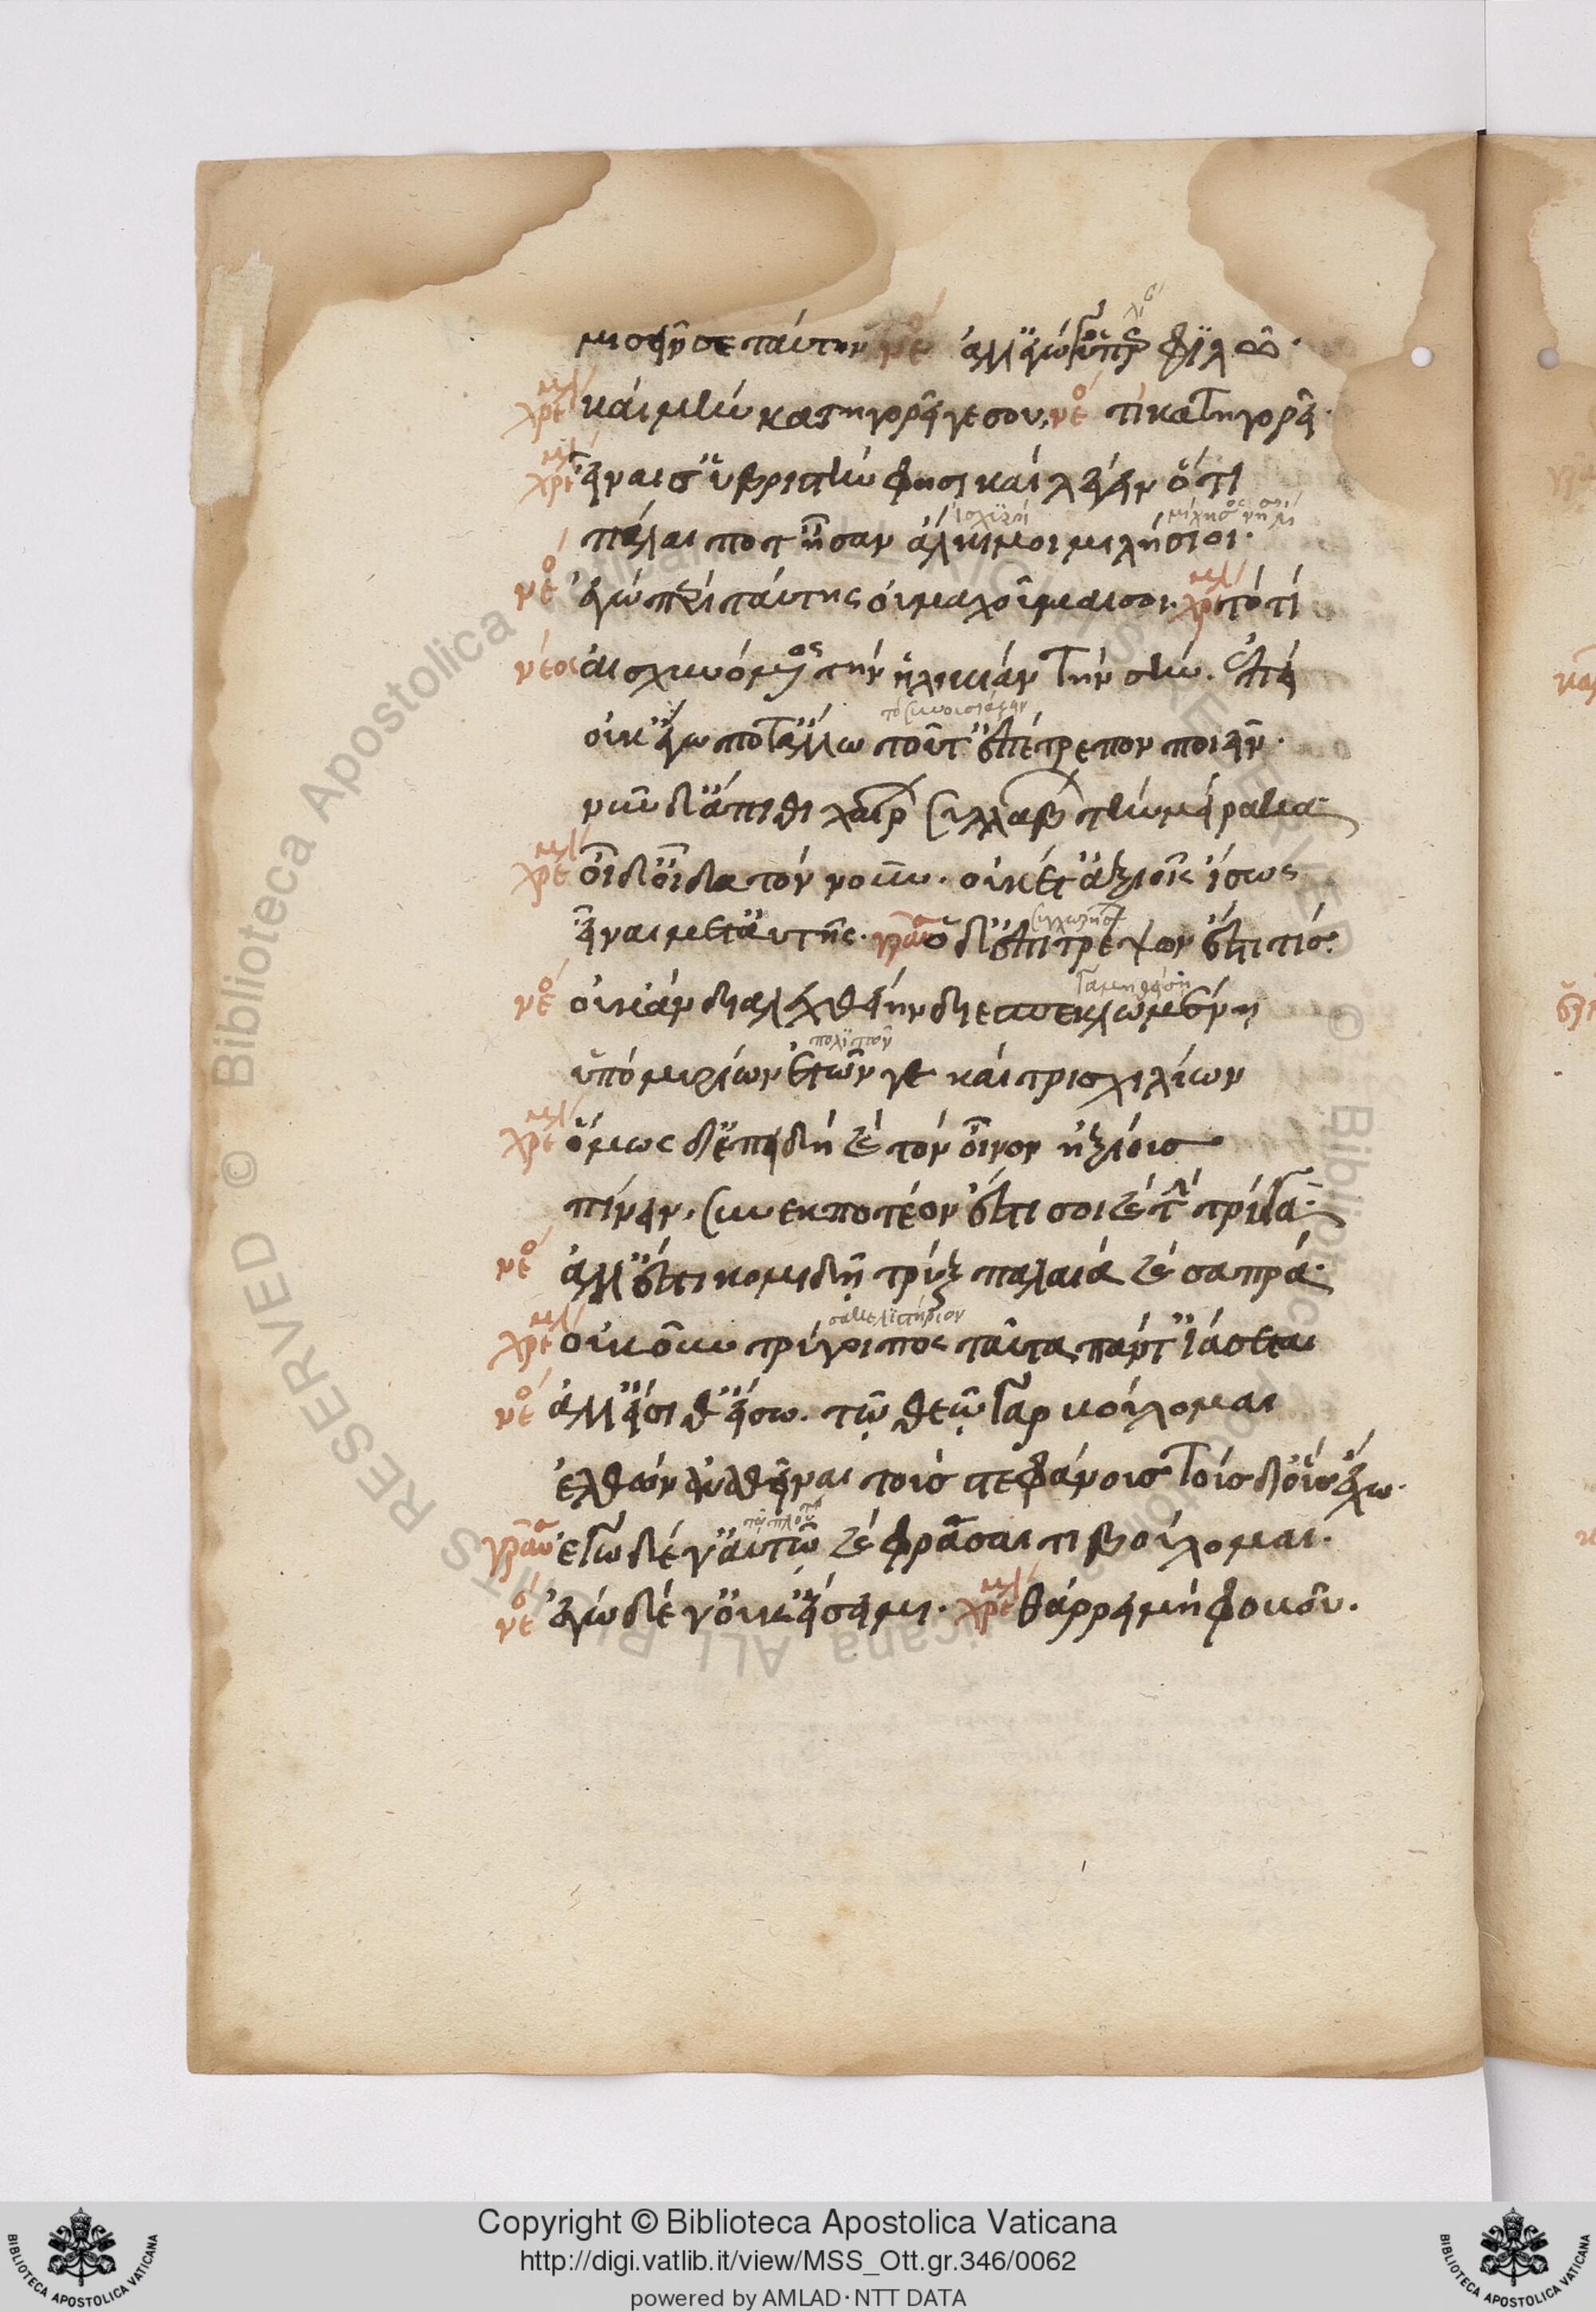 μισεῖν σε ταύτην νέ ἀλλ' ἔγωγ' ὑπερφιλῶ.
χρε καὶ μὴν κατηγορεῖ γέ σου. νέ τί κατηγορεῖ.
χρε εἶναί σ' ὑβριστήν φησι καὶ λέγειν ὅτι
πάλαι ποτ' ἦσαν ἄλκιμοι μιλήσιοι.
νέ ἐγὼ περὶ ταύτης οὐ μαχοῦμαί σοι. χρε τὸ τί
νέος αἰσχυνόμενος τὴν ἡλικίαν τὴν σήν. ἐπεὶ
τὸ συνουσιάζειν
οὐκ ἄν ποτ' ἄλλῳ τοῦτ' ἐπέτρεπον ποιεῖν.
νῦν δ' ἄπιθι χαίρων συλλαβὼν τὴν μείρακα
χρε οἶδ' οἶδα τὸν νοῦν. οὐκέτ' ἀξιοῖς ἴσως
εἶναι μετ' αὐτῆς. γραῦ ὁ δ' ἐπιτρέψων ἐστὶ τίς.
νέ οὐκ ἂν διαλεχθείην διεσπεκλωμένῃ
ὑπὸ μυρίων ἐτῶν γε καὶ τρισχιλίων
χρε ὅμως δ' ἐπειδὴ καὶ τὸν οἶνον ἠξίους
πίνειν. συνεκποτέον ἐστί σοι καὶ τὴν τρύγα
νέ ἀλλ' ἔστι κομιδῇ τρὺξ παλαιὰ καὶ σαπρά.
χρε οὐκοῦν τρύγοιπος ταῦτα πάντ' ἰάσεται
νέ ἀλλ' εἴσιθ' εἴσω. τῷ θεῷ γὰρ βούλομαι
ἐλθὼν ἀναθεῖναι τοὺς στεφάνους τούσδ' οὓς ἔχω.
γραῦ ἐγὼ δέ γ' αὐτῷ καὶ φράσαι τι βούλομαι.
νέ ἐγὼ δέ γ' οὐκ εἴσειμι. χρε θάρρει μὴ φοβοῦ.
Copyright © Biblioteca Apostolica Vaticana
http://digi.vatlib.it/view/MSS_Ott.gr.346/0062
powered by AMLAD · NTT DATA